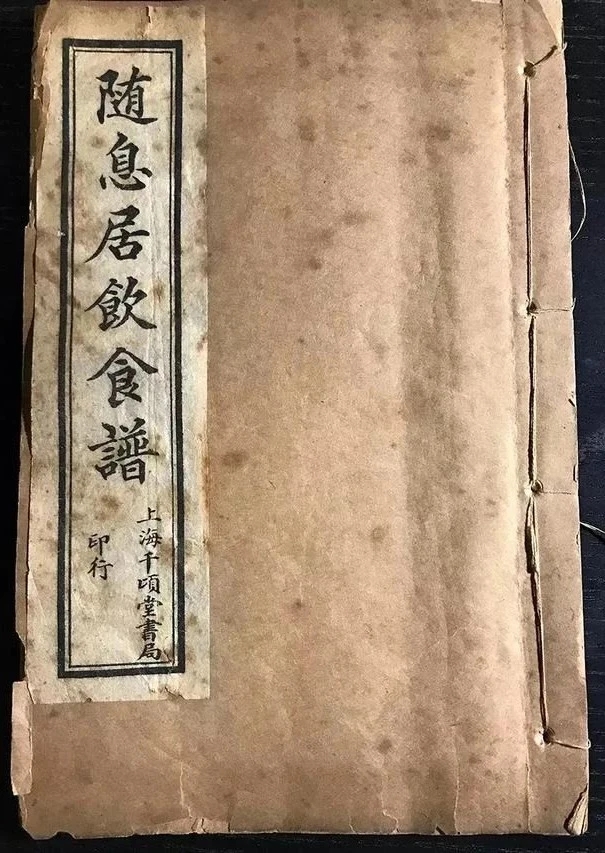 随息居飲食譜
上海千頃堂書局
印行